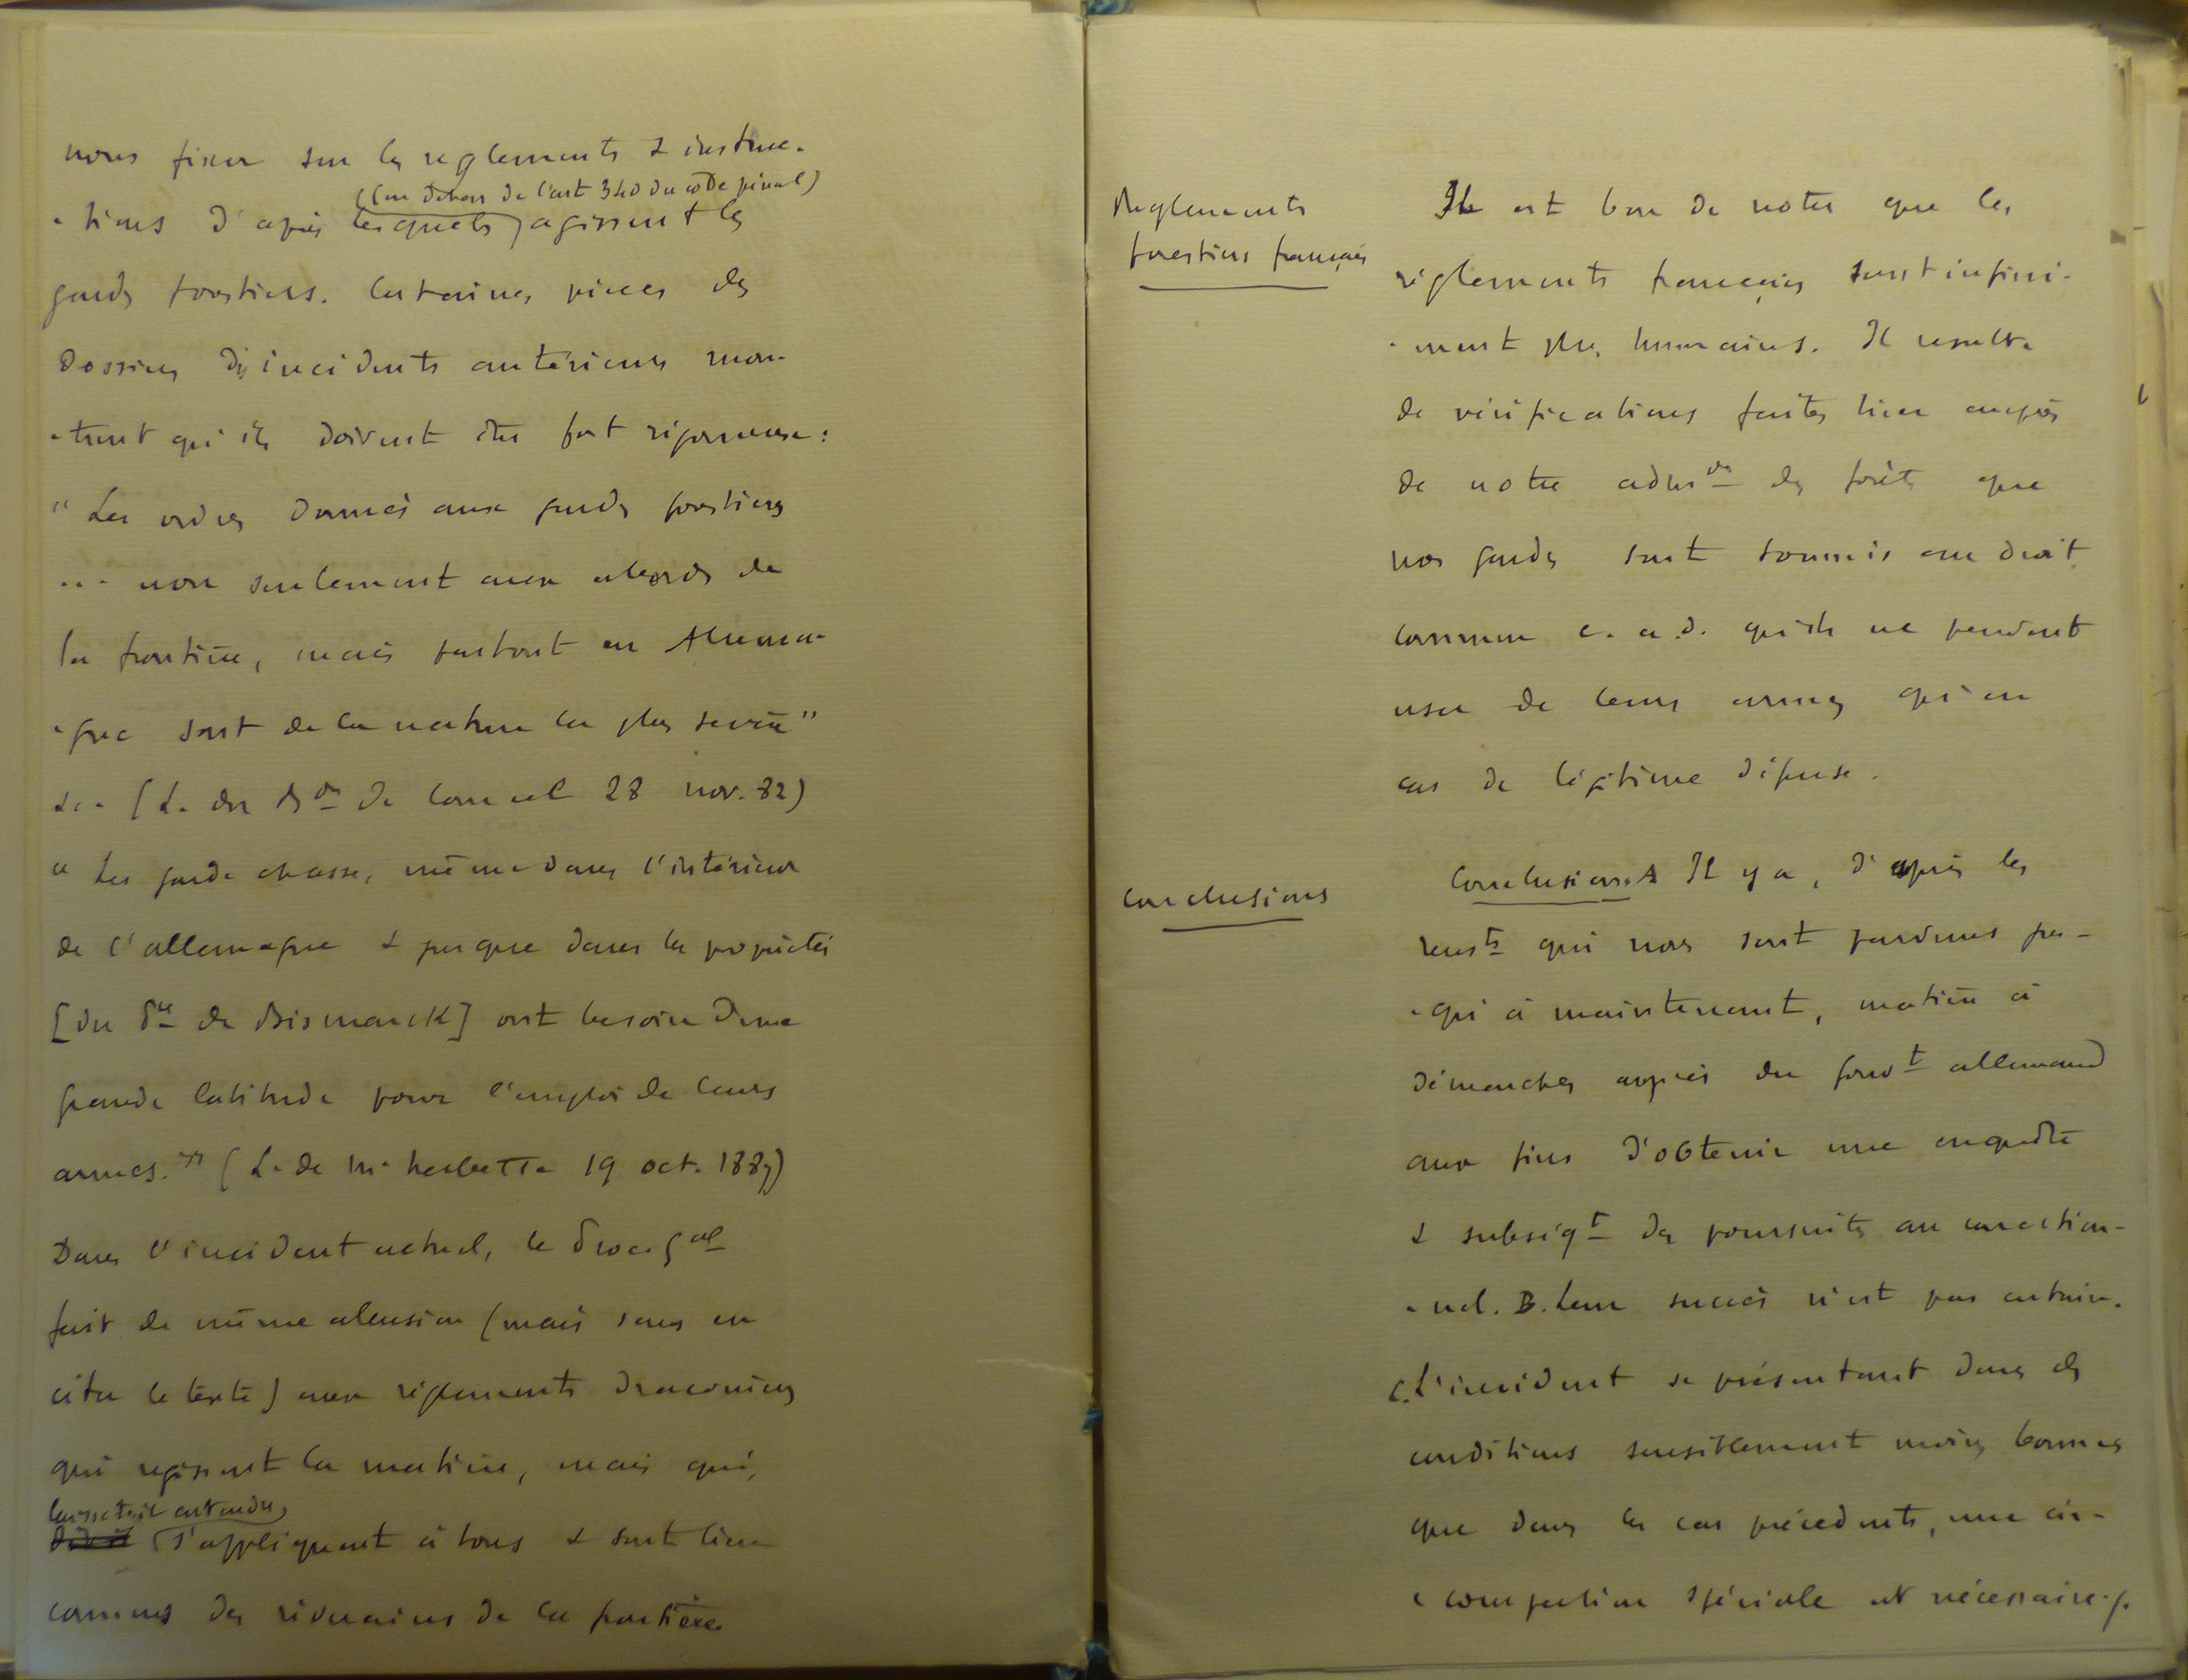 nous fixer sur les reglements & instruc-
(en dehors de l'art 340 du code pénal)
-tions d'après lesquels agissent les
gardes forestiers. Certaines pièces des
dossiers d'incidents antérieurs mon-
-trent qu'ils doivent être fort rigoureux :
"Les ordres donnés aux gardes forestiers
... non seulement aux abords de
la frontière, mais partout en Allema-
-gne sont de la nature la plus sévère"
(L. du de Courcel 28 nov. 82)
" Les garde chasse, même dans l'intérieur
de l'allemagne & jusque dans les propriétés
[du Pce de Bismarck] ont besoin d'une
grande latitude pour l'emploi de leurs
armes." (L. de Mr herbette 19 oct. 1887)
Dans l'incident actuel, le Proc. Gal
fait de même allusion (mais sans en
citer le texte) aux réglements draconiens
qui régissent la matière, mais qui,
laisse-t-il entendre,
s'appliquent à tous & sont bien
connus des riverains de la frontière
Reglements
forestiers français
Il est bon de noter que les
réglements français sont infini-
-ment plus humains. Il resulte
de vérifications faites hier auprès
de notre admon des forêts que
nos gardes sont soumis au droit
commun c. a. d. qu'ils ne peuvent
user de leurs armes qu'en
cas de légitime défense.
Conclusions
Conclusions A Il y a, d'après les
rensts qui nous sont parvenus jus-
-qu'à maintenant, matière à
démarches auprès du gouvt allemand
aux fins d'obtenir une enquête
& subséqt des poursuites au correction-
-nel. B. Leur succès n'est pas certain.
C. L'incident se présentant dans des
conditions sensiblement moins bonnes
que dans les cas précédents, une cir-
-conspection spéciale est nécessaire./.